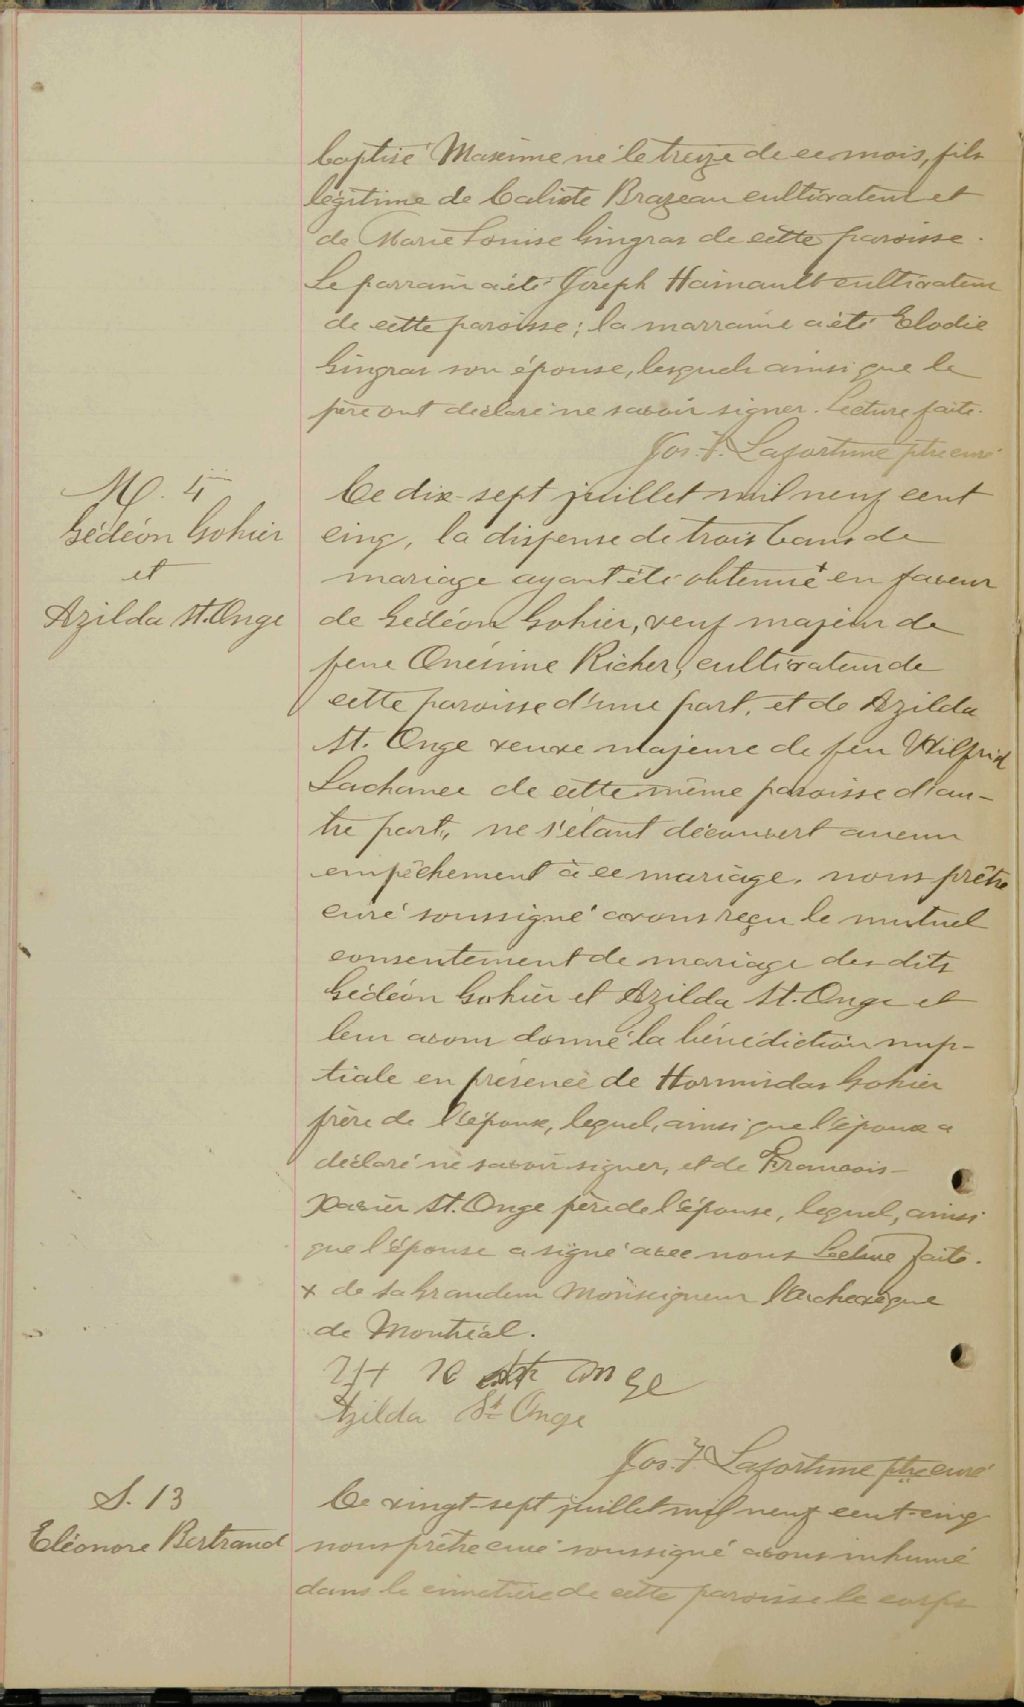 baptisé Maxime né le treize de ce mois, fils
légitime de Calixte Brazeau cultivateur et
de Marie Louise Gingras de cette paroisse.
Le parrain a été Joseph Hainault cultivateur
de cette paroisse; la marraine a été Elodie
Gingras son épouse, lesquels ainsi que le
père ont déclaré ne savoir signer. Lecture faite.
Jos. F. Lafortune ptre curé
M. 4
Gédéon Gohier
et
Azilda St. Onge
Ce dix-sept juillet mil neuf cent
cinq, la dispense de trois bans de
mariage ayant été obtenue + en faveur
de Gédéon Gohier, veuf majeur de
feue Onésime Richer, cultivateur de
cette paroisse d'une part, et de Azilda
St. Onge veuve majeure de feu Wilfrid
Lachance de cette même paroisse d'au-
tre part, ne s'étant découvert aucun
empêchement à ce mariage, nous prêtre
curé soussigné avons reçu le mutuel
consentement de mariage des dits
Gédéon Gohier et Azilda St. Onge et
leur avons donné la bénédiction nup-
tiale en présence de Hormisdas Gohier
frère de l'époux, lequel, ainsi que l'époux a
déclaré ne savoir signer, et de Francois-
Xavier St. Onge père de l'épouse, lequel, ainsi
que l'épouse a signé avec nous Lecture faite.
x de Sa Grandeur Monseigneur l'Archevêque
de Montréal.
St onge
Azilda St Onge
Jos. F. Lafortune ptre curé
S. 13
Eléonore Bertrand
Ce vingt-sept juillet mil neuf cent-cinq
nous prêtre curé soussigné avons inhumé
dans le cimetière de cette paroisse le corps